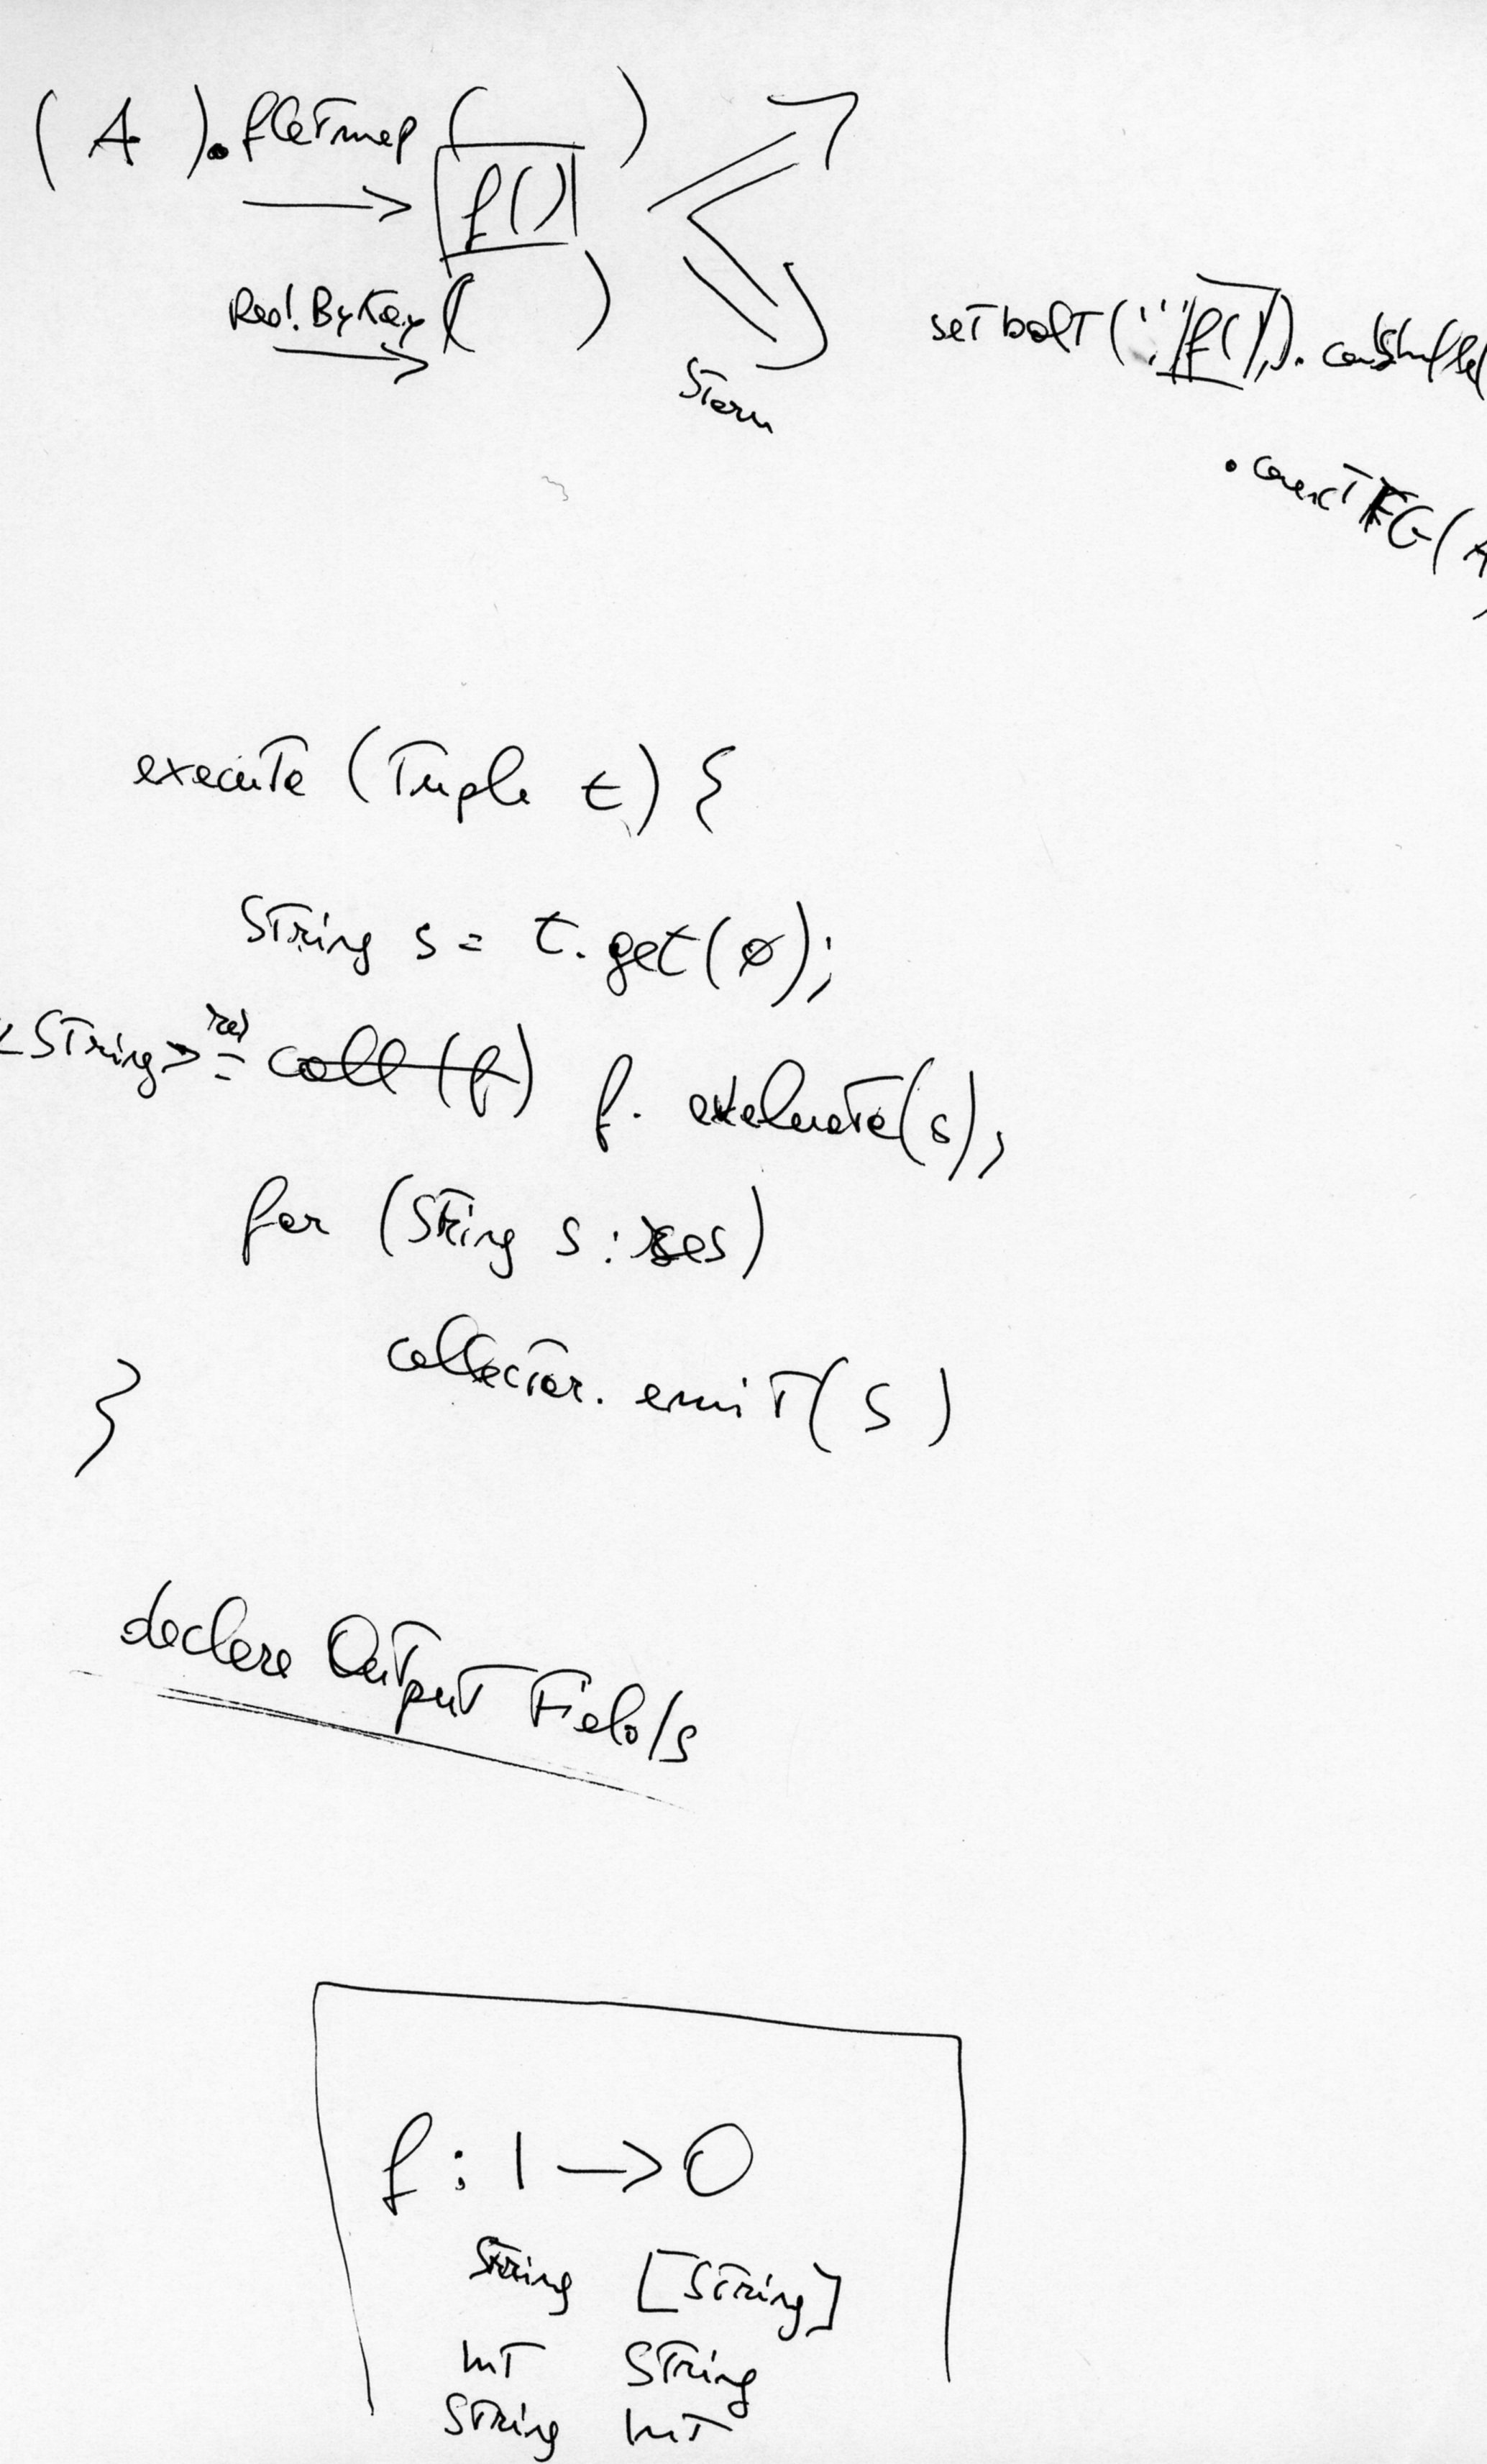 (A).flatmap( )
f()
Red.ByKey( )
Storm
setbolt("", f()).
.connectFG(A
execute (Tuple t) {
String s = t.get(0);
<String> res = call (f) f. evaluate(s);
for (String s : res)
collector. emit(s)
}
declare Output Fields
f : I -> O
String [String]
Int String
String Int